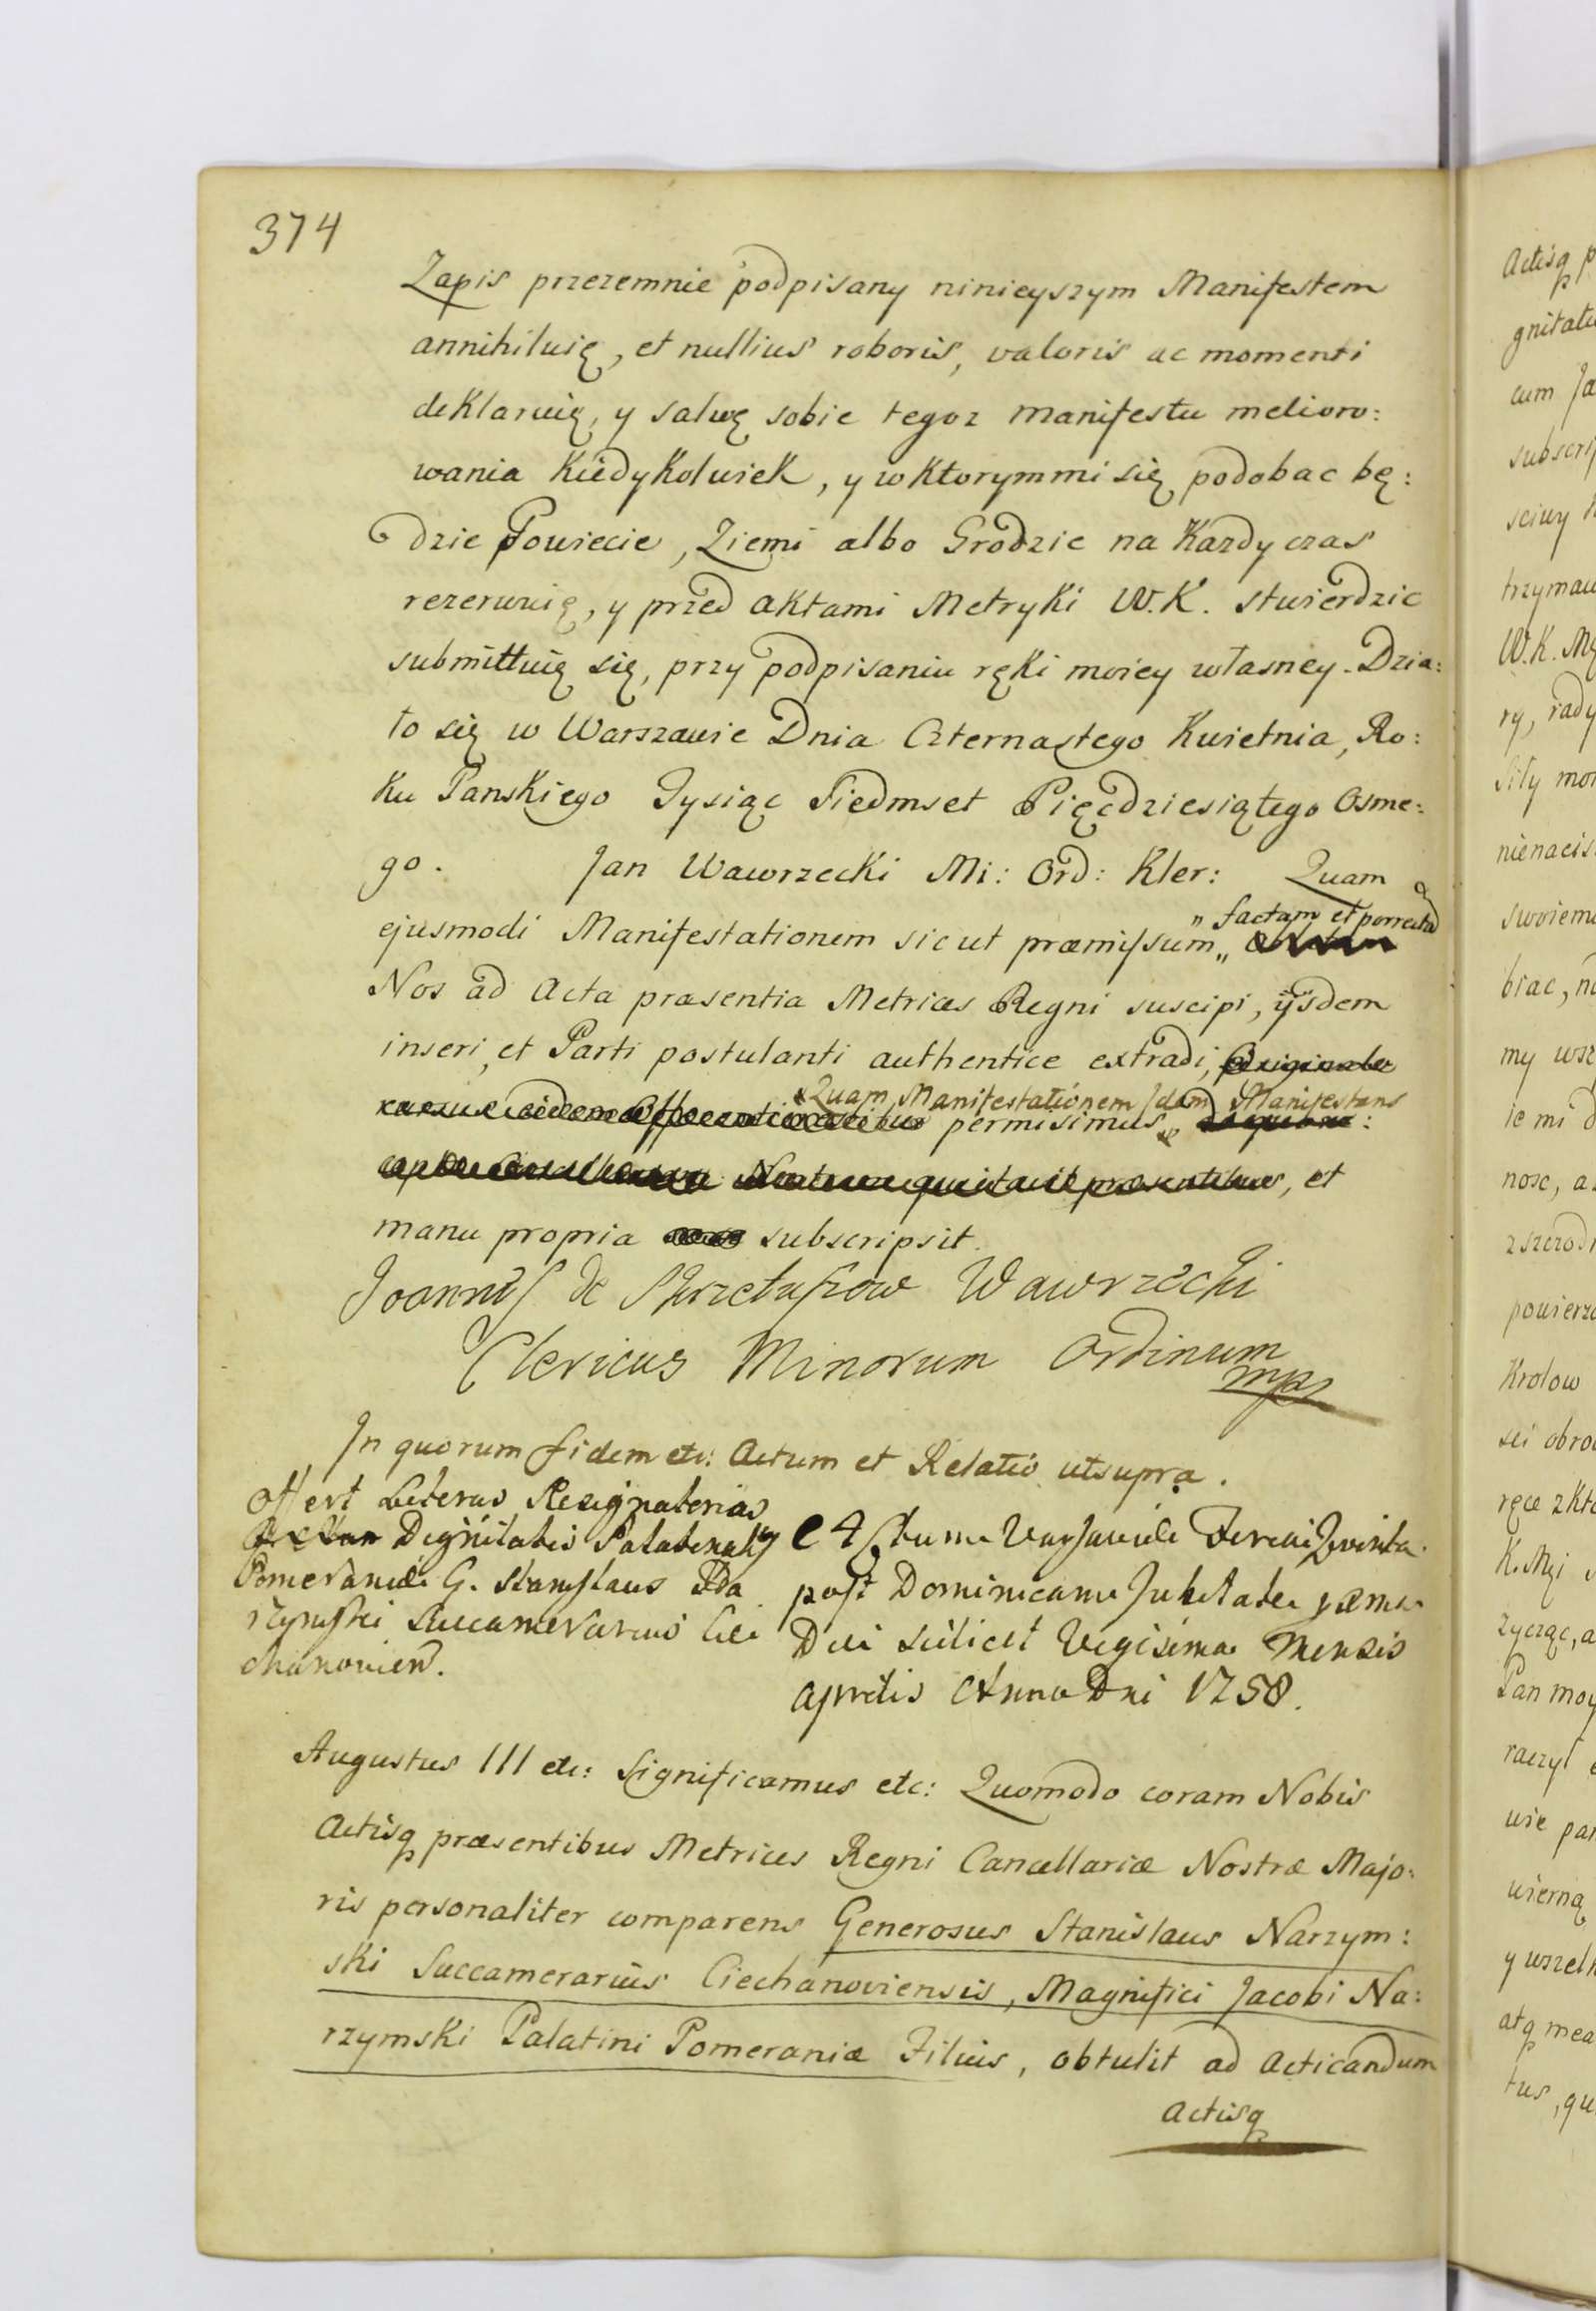 374
Zapis przezemnie podpisany ninieyszym Manifestem
annihiluię, et nullius roboris, valoris ac momenti
deklaruię, y salwę sobie tegoz manifestu melioro:
wania kiedykolwiek, y w ktorym mi się podobac bę:
dzie Powiecie, Ziemi albo Grodzie na Kazdy czas
rezerwuię, y przed aktami Metryki W.K. stwierdzic
submittuię się, przy podpisaniu ręki moiey własney. Dzia:
ło się w Warszawie Dnia Czternastego Kwietnia, Ro:
ku Panskiego Tysiąc Siedmset Pięcdziesiątego Osme:
go. Jan Wawrzecki Mi: Ord: Kler: Quam
" factam et porrectã
ejusmodi Manifestationem sicut præmissum "
Nos ad Acta præsentia Metrices Regni suscipi, ijsdem
inseri, et Parti postulanti authentice extradi, Originale
Quam Manifestationem Idem Manifestans
permisimus
præsentibus, et
manu propria subscripsit.
Joannes de Wawrzecki
Clericus Minorum Ordinum
mpp
In quorum fidem etc: Actum et Relatio ut supra.
Offert Literas Resignatorias
Dignitatis Palatinalis
Pomeraniæ G. Stanislaus Na
rzymski Succamerarius Cie
chanovien.
Actum Varsaviæ Feria Quinta
post Dominicam Jubilate proxima
Die scilicet Vigesima Mensis
Aprilis Anno Dni 1758.
Augustus III etc: Significamus etc: Quomodo coram Nobis
Actisq præsentibus Metrices Regni Cancellariæ Nostræ Majo:
ris personaliter comparens Generosus Stanislaus Narzym:
ski Succamerarius Ciechanoviensis, Magnifici Jacobi Na:
rzymski Palatini Pomeraniæ Filius, obtulit ad Acticandum
Actisq
Actisq p
cum Ja
W.K.
ry, rady
siły mo
my wsz
ie mi d
nosc, a
Krolow
Pan moy
raczył
wierną
atq mea
tus, qu